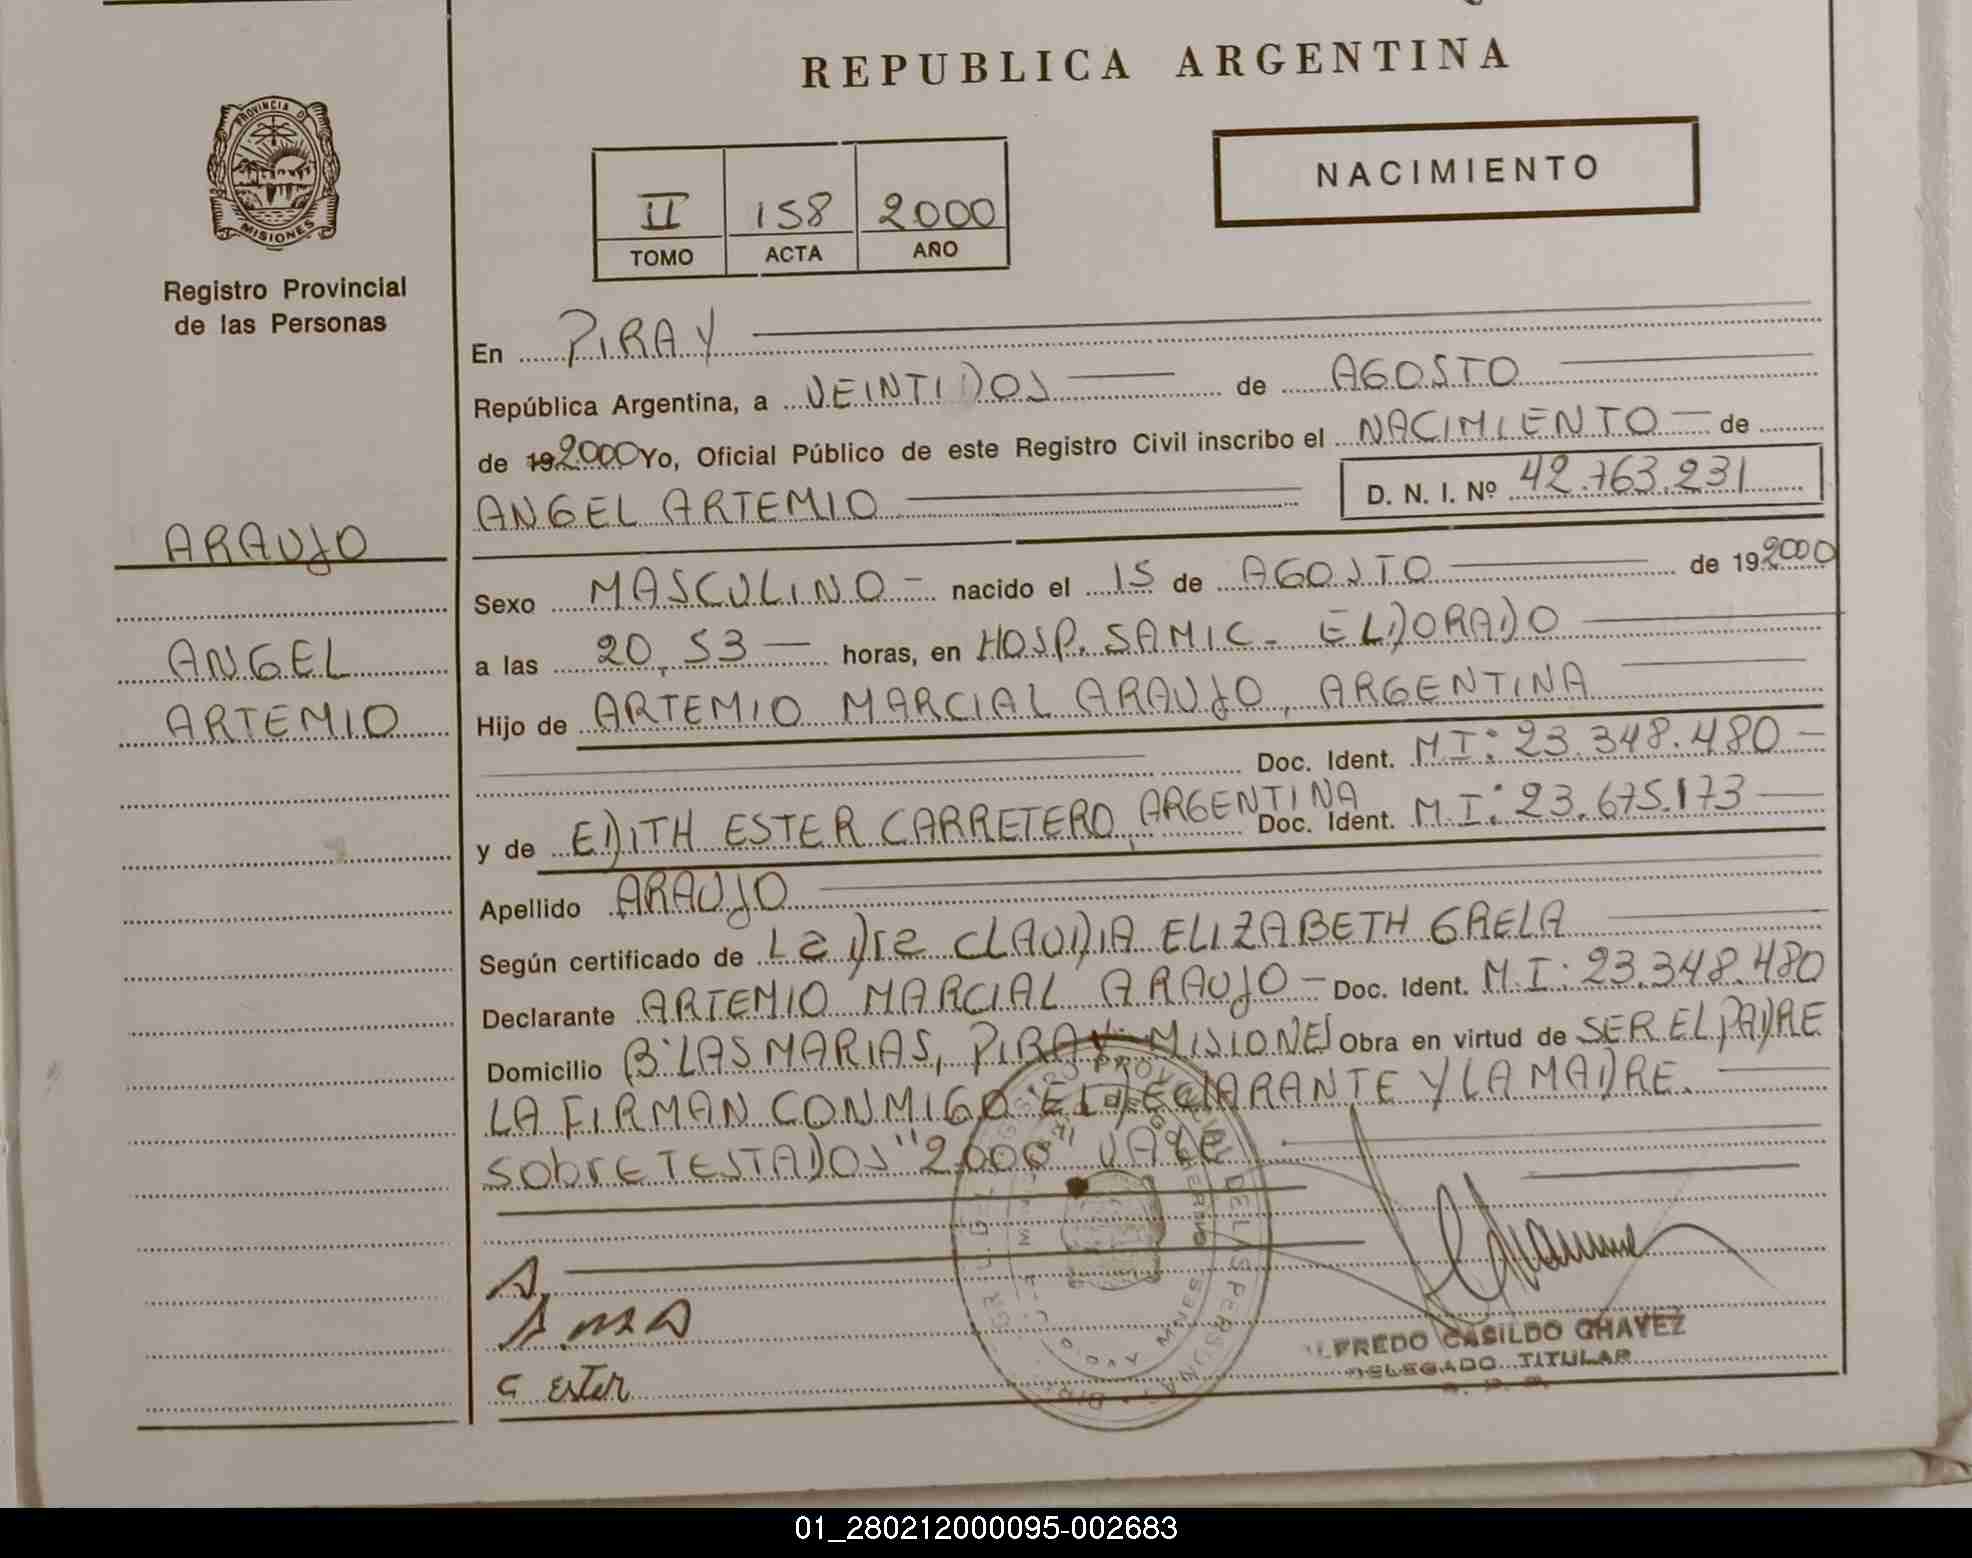 REPUBLICA ARGENTINA
PROVINCIA D
MISIONES
Registro Provincial
de las Personas
NACIMIENTO
II 158 2000
TOMO ACTA AÑO
En PIRAY
República Argentina, a VEINTIDOS de AGOSTO
de 192000 Yo, Oficial Público de este Registro Civil inscribo el NACIMIENTO de
ANGEL ARTEMIO D. N. I. Nº 42.763.231
ARAUJO
ANGEL
ARTEMIO
Sexo MASCULINO nacido el 15 de AGOSTO de 192000
a las 20,53 horas, en HOSP. SAMIC - ELDORADO
Hijo de ARTEMIO MARCIAL ARAUJO, ARGENTINA
Doc. Ident. M.I: 23.348.480
y de EDITH ESTER CARRETERO, ARGENTINA Doc. Ident. M.I: 23.675.173
Apellido ARAUJO
Según certificado de La Dra CLAUDIA ELIZABETH GRELA
Declarante ARTEMIO MARCIAL ARAUJO - Doc. Ident. M.I: 23.348.480
Domicilio Bº LAS MARIAS, PIRAY MISIONES Obra en virtud de SER EL PADRE
LA FIRMAN CONMIGO EL DECLARANTE Y LA MADRE.
SObrE TESTADOS "2.000" VALE
ESter
ALFREDO CASILDO CHAVEZ
DELEGADO TITULAR
01_280212000095-002683